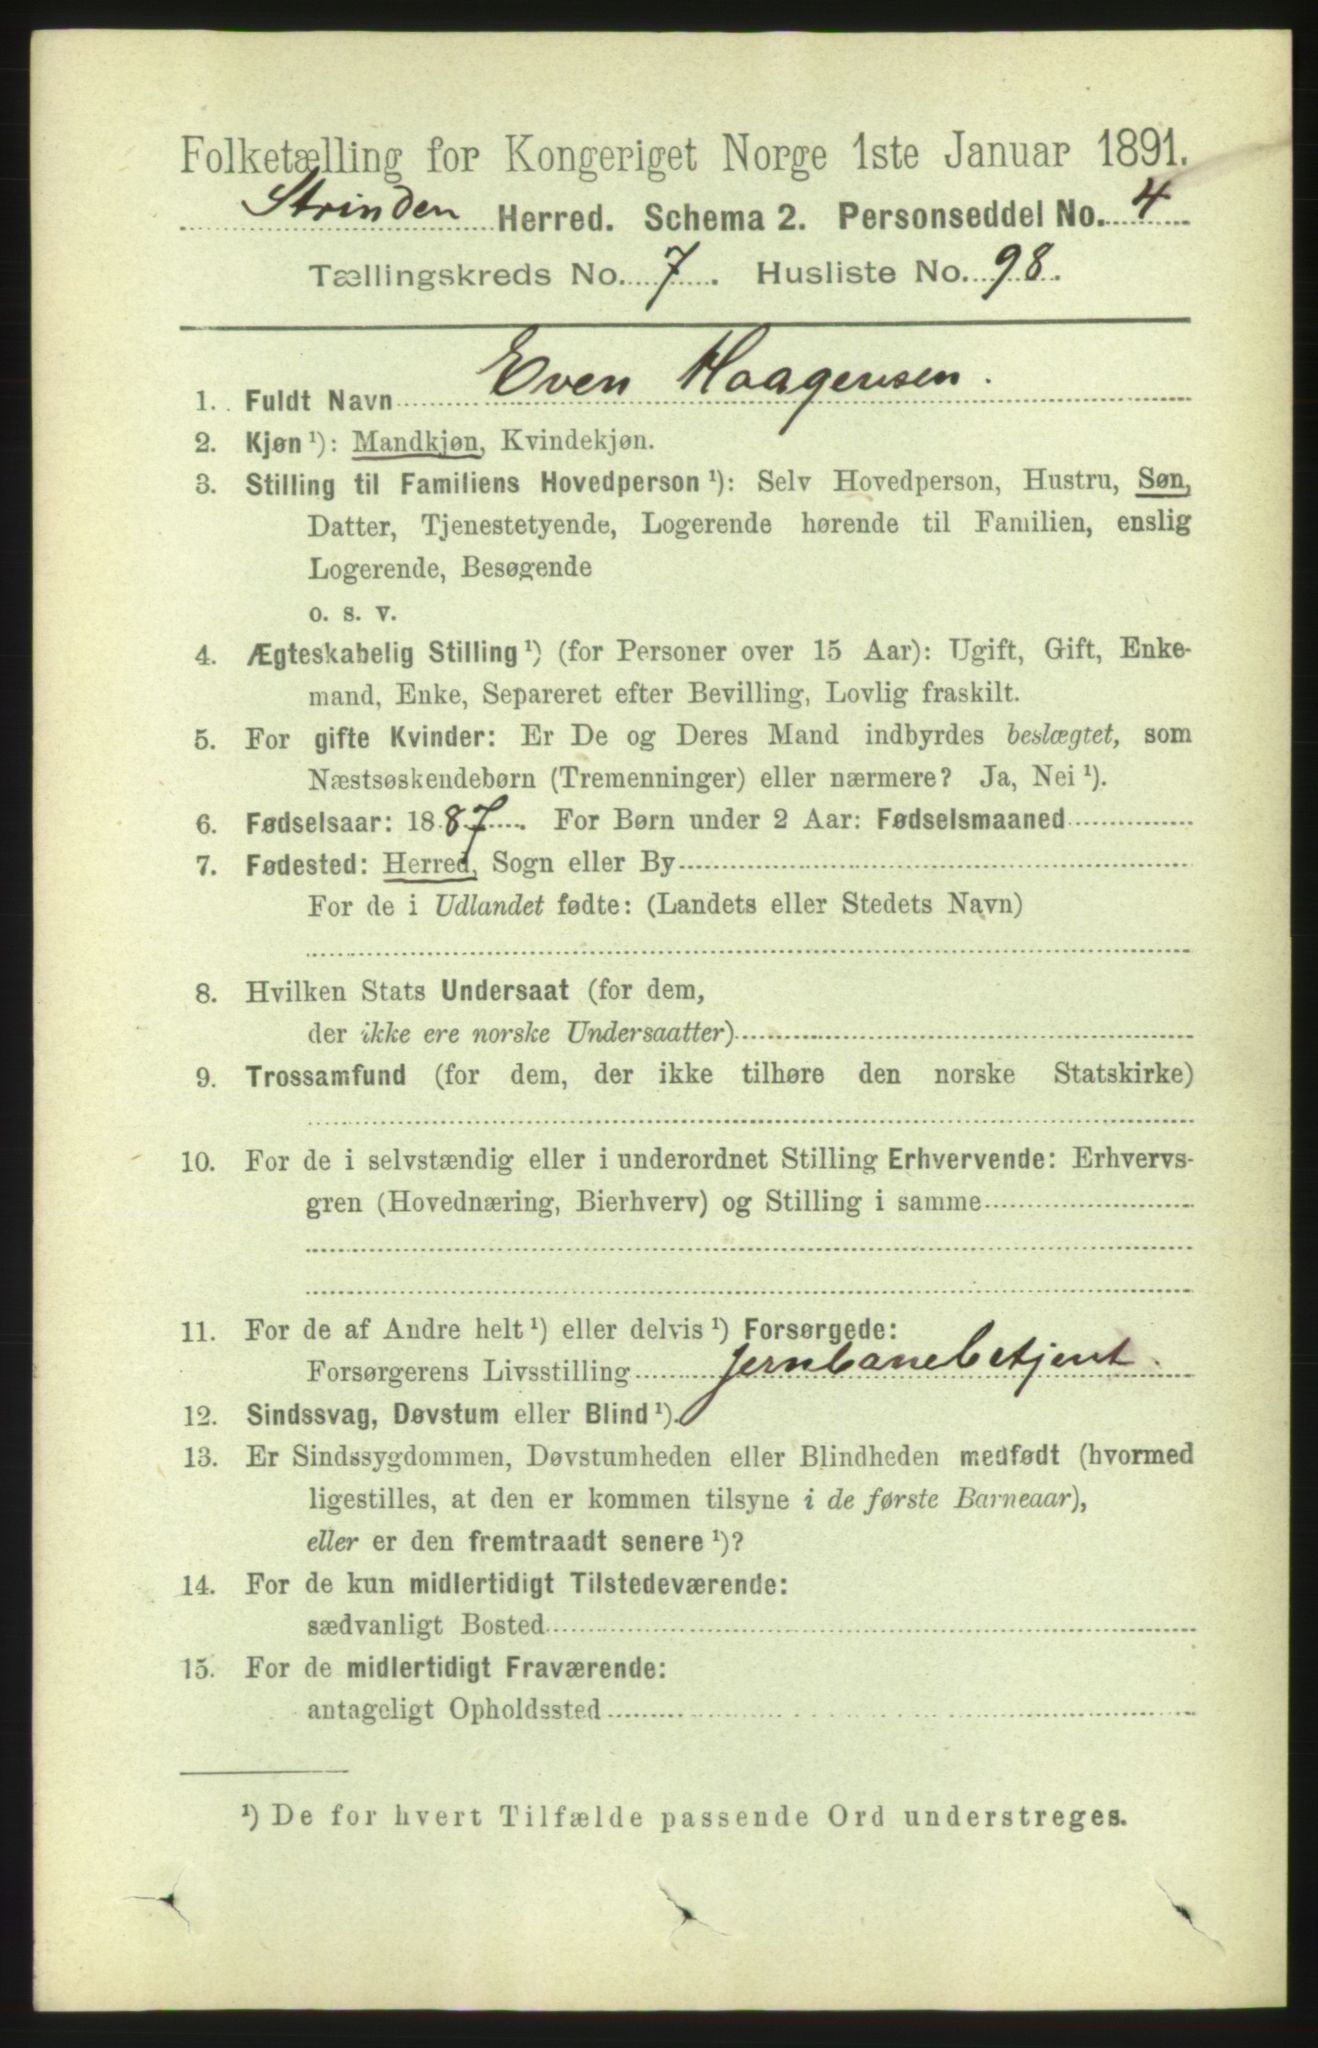 Folketælling for Kongeriget Norge 1ste Januar 1891.
Strinden Herred. Schema 2. Personseddel No. 4
Tællingskreds No. 7. Husliste No. 98.
1. Fuldt Navn Even Haagensen.
2. Kjøn ¹): Mandkjøn, Kvindekjøn.
3. Stilling til Familiens Hovedperson ¹): Selv Hovedperson, Hustru, Søn,
Datter, Tjenestetyende, Logerende hørende til Familien, enslig
Logerende, Besøgende
o. s. v.
4. Ægteskabelig Stilling ¹) (for Personer over 15 Aar): Ugift, Gift, Enke-
mand, Enke, Separeret efter Bevilling, Lovlig fraskilt.
5. For gifte Kvinder: Er De og Deres Mand indbyrdes beslægtet, som
Næstsøskendebørn (Tremenninger) eller nærmere? Ja, Nei ¹).
6. Fødselsaar: 1887. For Børn under 2 Aar: Fødselsmaaned
7. Fødested: Herred, Sogn eller By
For de i Udlandet fødte: (Landets eller Stedets Navn)
8. Hvilken Stats Undersaat (for dem,
der ikke ere norske Undersaatter)
9. Trossamfund (for dem, der ikke tilhøre den norske Statskirke)
10. For de i selvstændig eller i underordnet Stilling Erhvervende: Erhvervs-
gren (Hovednæring, Bierhverv) og Stilling i samme
11. For de af Andre helt ¹) eller delvis ¹) Forsørgede:
Forsørgerens Livsstilling jernbanebetjent.
12. Sindssvag, Døvstum eller Blind ¹).
13. Er Sindssygdommen, Døvstumheden eller Blindheden medfødt (hvormed
ligestilles, at den er kommen tilsyne i de første Barneaar),
eller er den fremtraadt senere ¹)?
14. For de kun midlertidigt Tilstedeværende:
sædvanligt Bosted
15. For de midlertidigt Fraværende:
antageligt Opholdssted
¹) De for hvert Tilfælde passende Ord understreges.